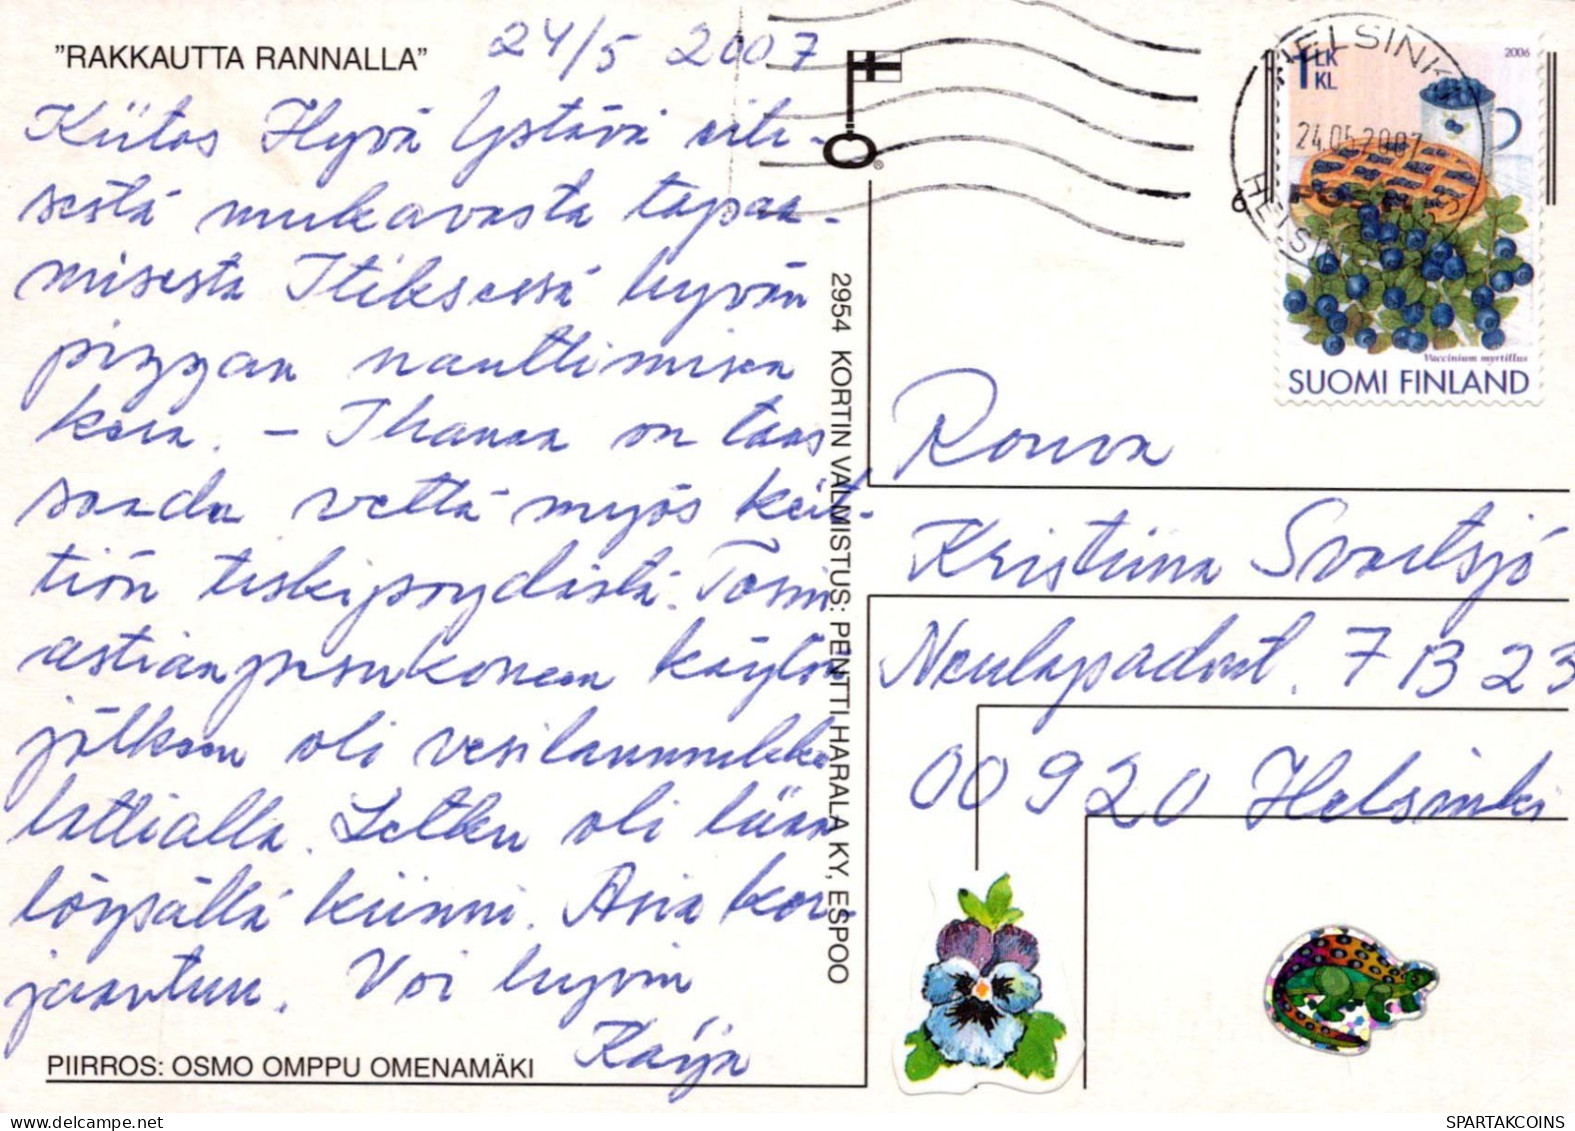 "RAKKAUTTA RANNALLA"
24/5 2007
Kiitos Hyvä Ystävä eile-
sestä mukavasta tapaa-
misesta Itiksessä hyvän
pizzan nauttimisen
kera. - Ihanaa on taas
saada vettä myös keit-
tiön tiskipöydästä. Tosin
astianpesukoneen käytön
jälkeen oli vesilammikko
lattialla. Letku oli liian
löysällä kiinni. Asia kor-
jaantuu. Voi hyvin
Kaija
PIIRROS: OSMO OMPPU OMENAMÄKI
2954 KORTIN VALMISTUS: PENTTI HARALA KY, ESPOO
HELSINKI
24.05.2007
HELSI
6
1 LK
KL
2006
Vaccinium myrtillus
SUOMI FINLAND
®
Rouva
Kristiina Svartsjö
Neulapadont. 7 B 23
00920 Helsinki
SPARTAKCOINS.COM